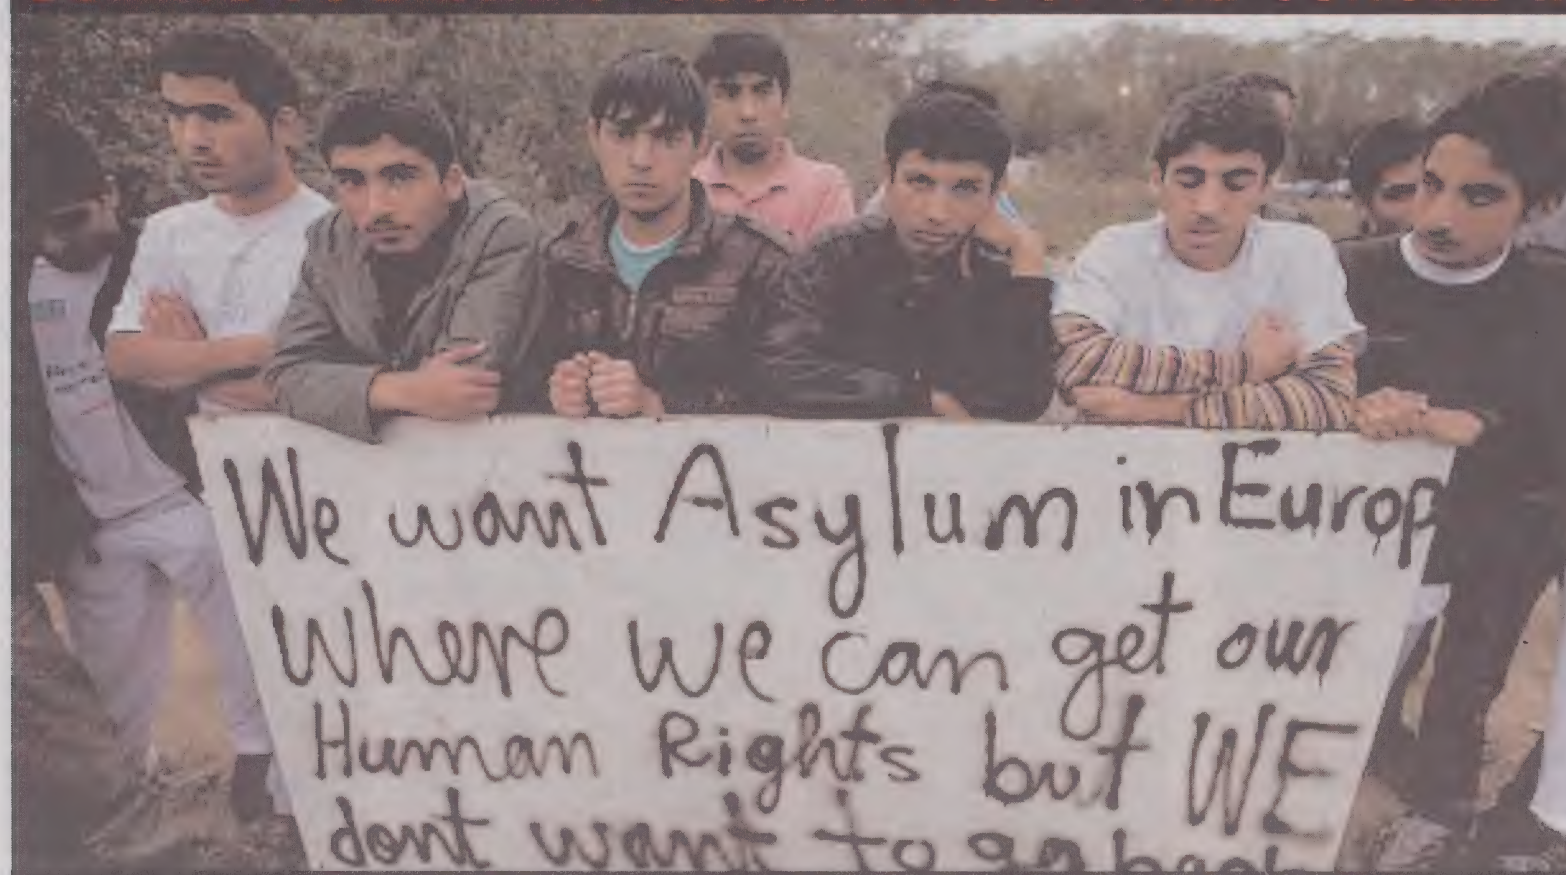 We want Asylum in Europ
Where we can get our
Human Rights but WE
dont want to go back